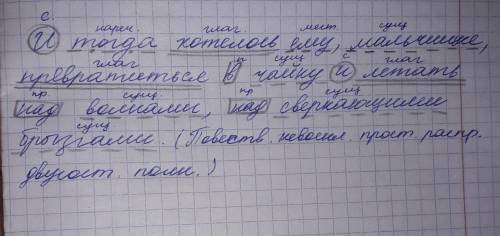 с. нареч. глаг. мест сущ
И тогда хотелось ему, мальчишке,
глаг пр сущ с глаг
превратиться в чайку и летать
пр. сущ пр сущ
над волнами, над сверкающими
сущ
брызгами. (Повеств. невоскл. прост. распр.
двусост. полн.)